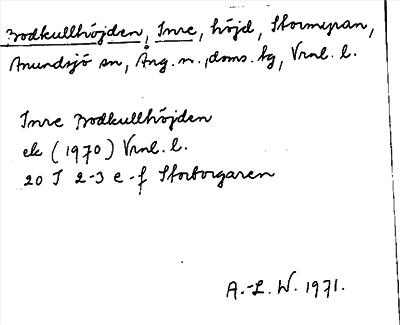 Bodkullhöjden, Inre, höjd, Stormyran,
Anundsjö sn, Ång. n., doms. tg, Vrnl. l.
Inre Bodkullhöjden
ek (1970) Vrnl. l.
20 I 2-3 e-f Storborgaren
A.-L. W. 1971.